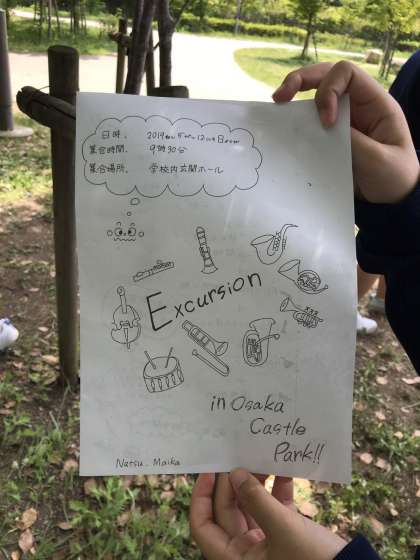 日時. 2019年5月12日日曜日
集合時間. 9時30分
集合場所. 学校内玄関ホール
Excursion
in Osaka
Castle
Park!!
Natsu. Maika